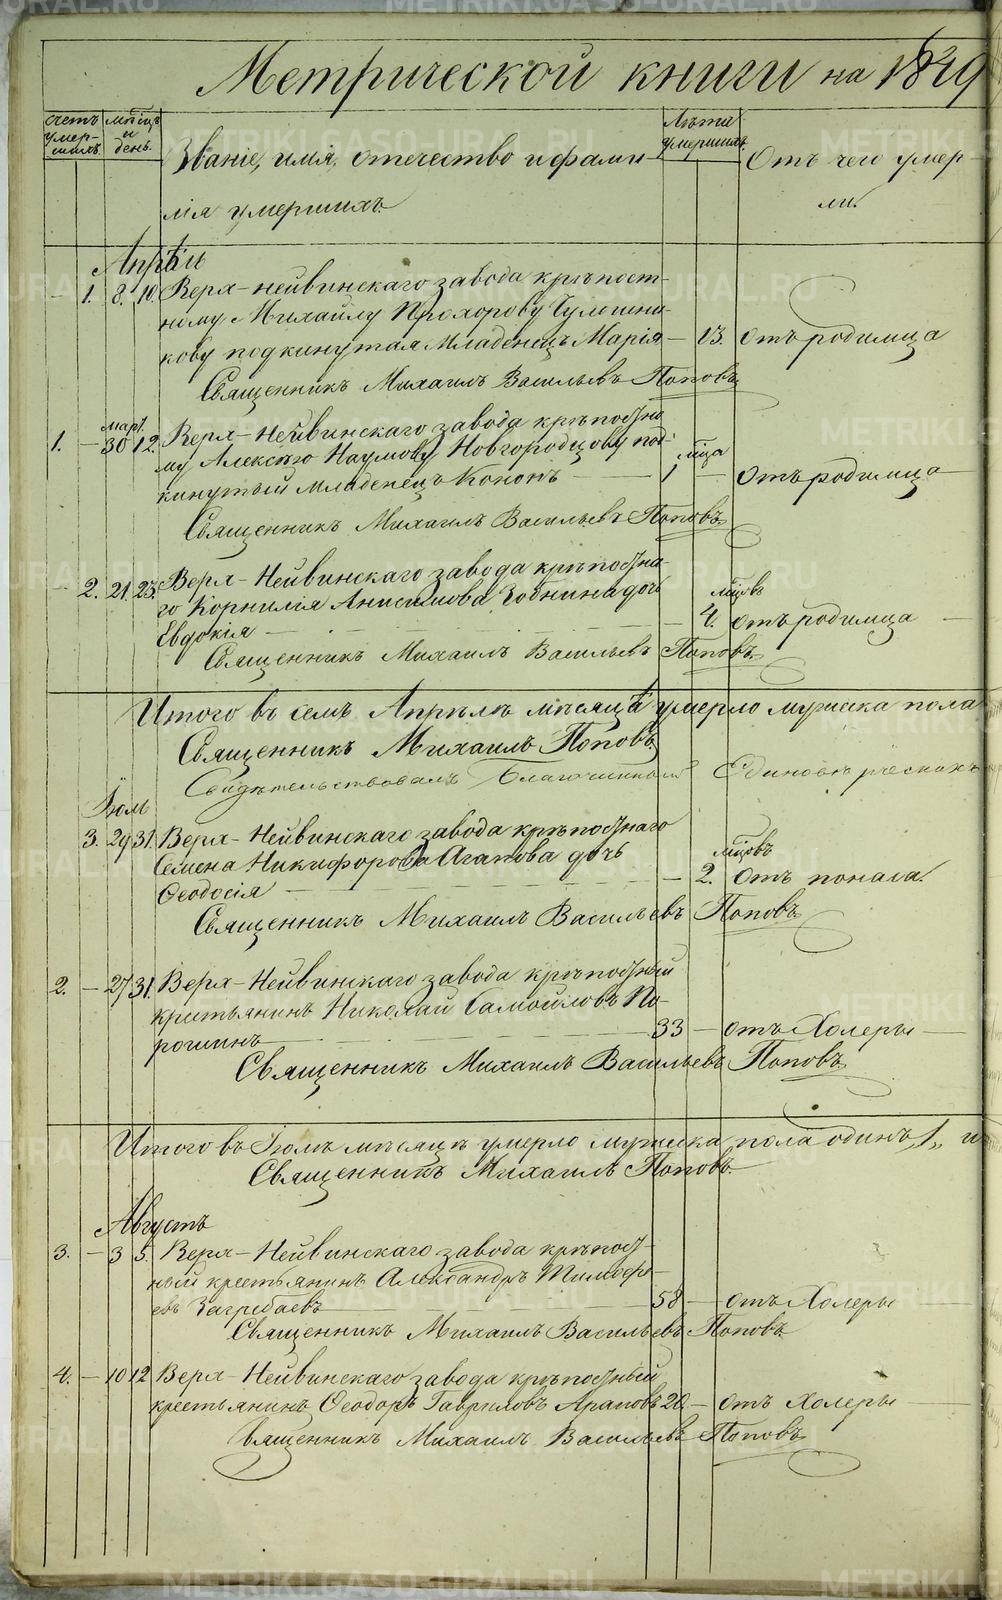 Метрической книги на 1849
счетъ умер-шихъ.
мѣсяцъ и день.
Званіе, имя, отечество и фами-
лія умершихъ.
Лѣта умершихъ.
Отъ чего умер-
ли.
Апрѣль
— 1. 8. 10. Верх-нейвинскаго завода крѣпост-
ному Михайлу Прохорову
кову подкинутая младенецъ Марія — 13. отъ родимца
Священникъ Михаилъ Васильевъ Поповъ
март.
1. — 30 12. Верх-Нейвинскаго завода крѣпостно-
му Алексѣю Наумову Новгородцову под-
мѣсяца
кинутый младенецъ Кононъ — 1 — отъ родимца —
Священникъ Михаилъ Васильевъ Поповъ
— 2. 21. 23. Верх-Нейвинскаго завода крѣпостна-
го Корнилія Анисимова дочь
мѣсяцовъ
Евдокія — 4. отъ родимца —
Священникъ Михаилъ Васильевъ Поповъ
Итого въ семъ Апрѣлѣ мѣсяцѣ умерло мужеска пола
Священникъ Михаилъ Поповъ
Свидѣтельствовалъ Благочинный Единовѣрческихъ
Іюль
3. 29 31. Верх-Нейвинскаго завода крѣпостнаго
Семена Никифорова Агапова дочь
мѣсяцовъ
Ѳеодосія — 2. отъ поноса.
Священникъ Михаилъ Васильевъ Поповъ
2. — 27 31. Верх-Нейвинскаго завода крѣпостный
крестьянинъ Николай Самойловъ По-
рошинъ — 33 — отъ Холеры —
Священникъ Михаилъ Васильевъ Поповъ
Итого въ Іюлѣ мѣсяцѣ умерло мужеска пола одинъ, 1, и
Священникъ Михаилъ Поповъ
Августъ
3. — 3 5. Верх-Нейвинскаго завода крѣпост-
ный крестьянинъ Александръ Тимофе-
евъ Загребаевъ — 58 — отъ Холеры
Священникъ Михаилъ Васильевъ Поповъ
4. — 10 12 Верх-Нейвинскаго завода крѣпостный
крестьянинъ Ѳеодоръ Гавриловъ Араповъ 20. — отъ Холеры
Священникъ Михаилъ Васильевъ Поповъ
METRIKI.GASO-URAL.RU